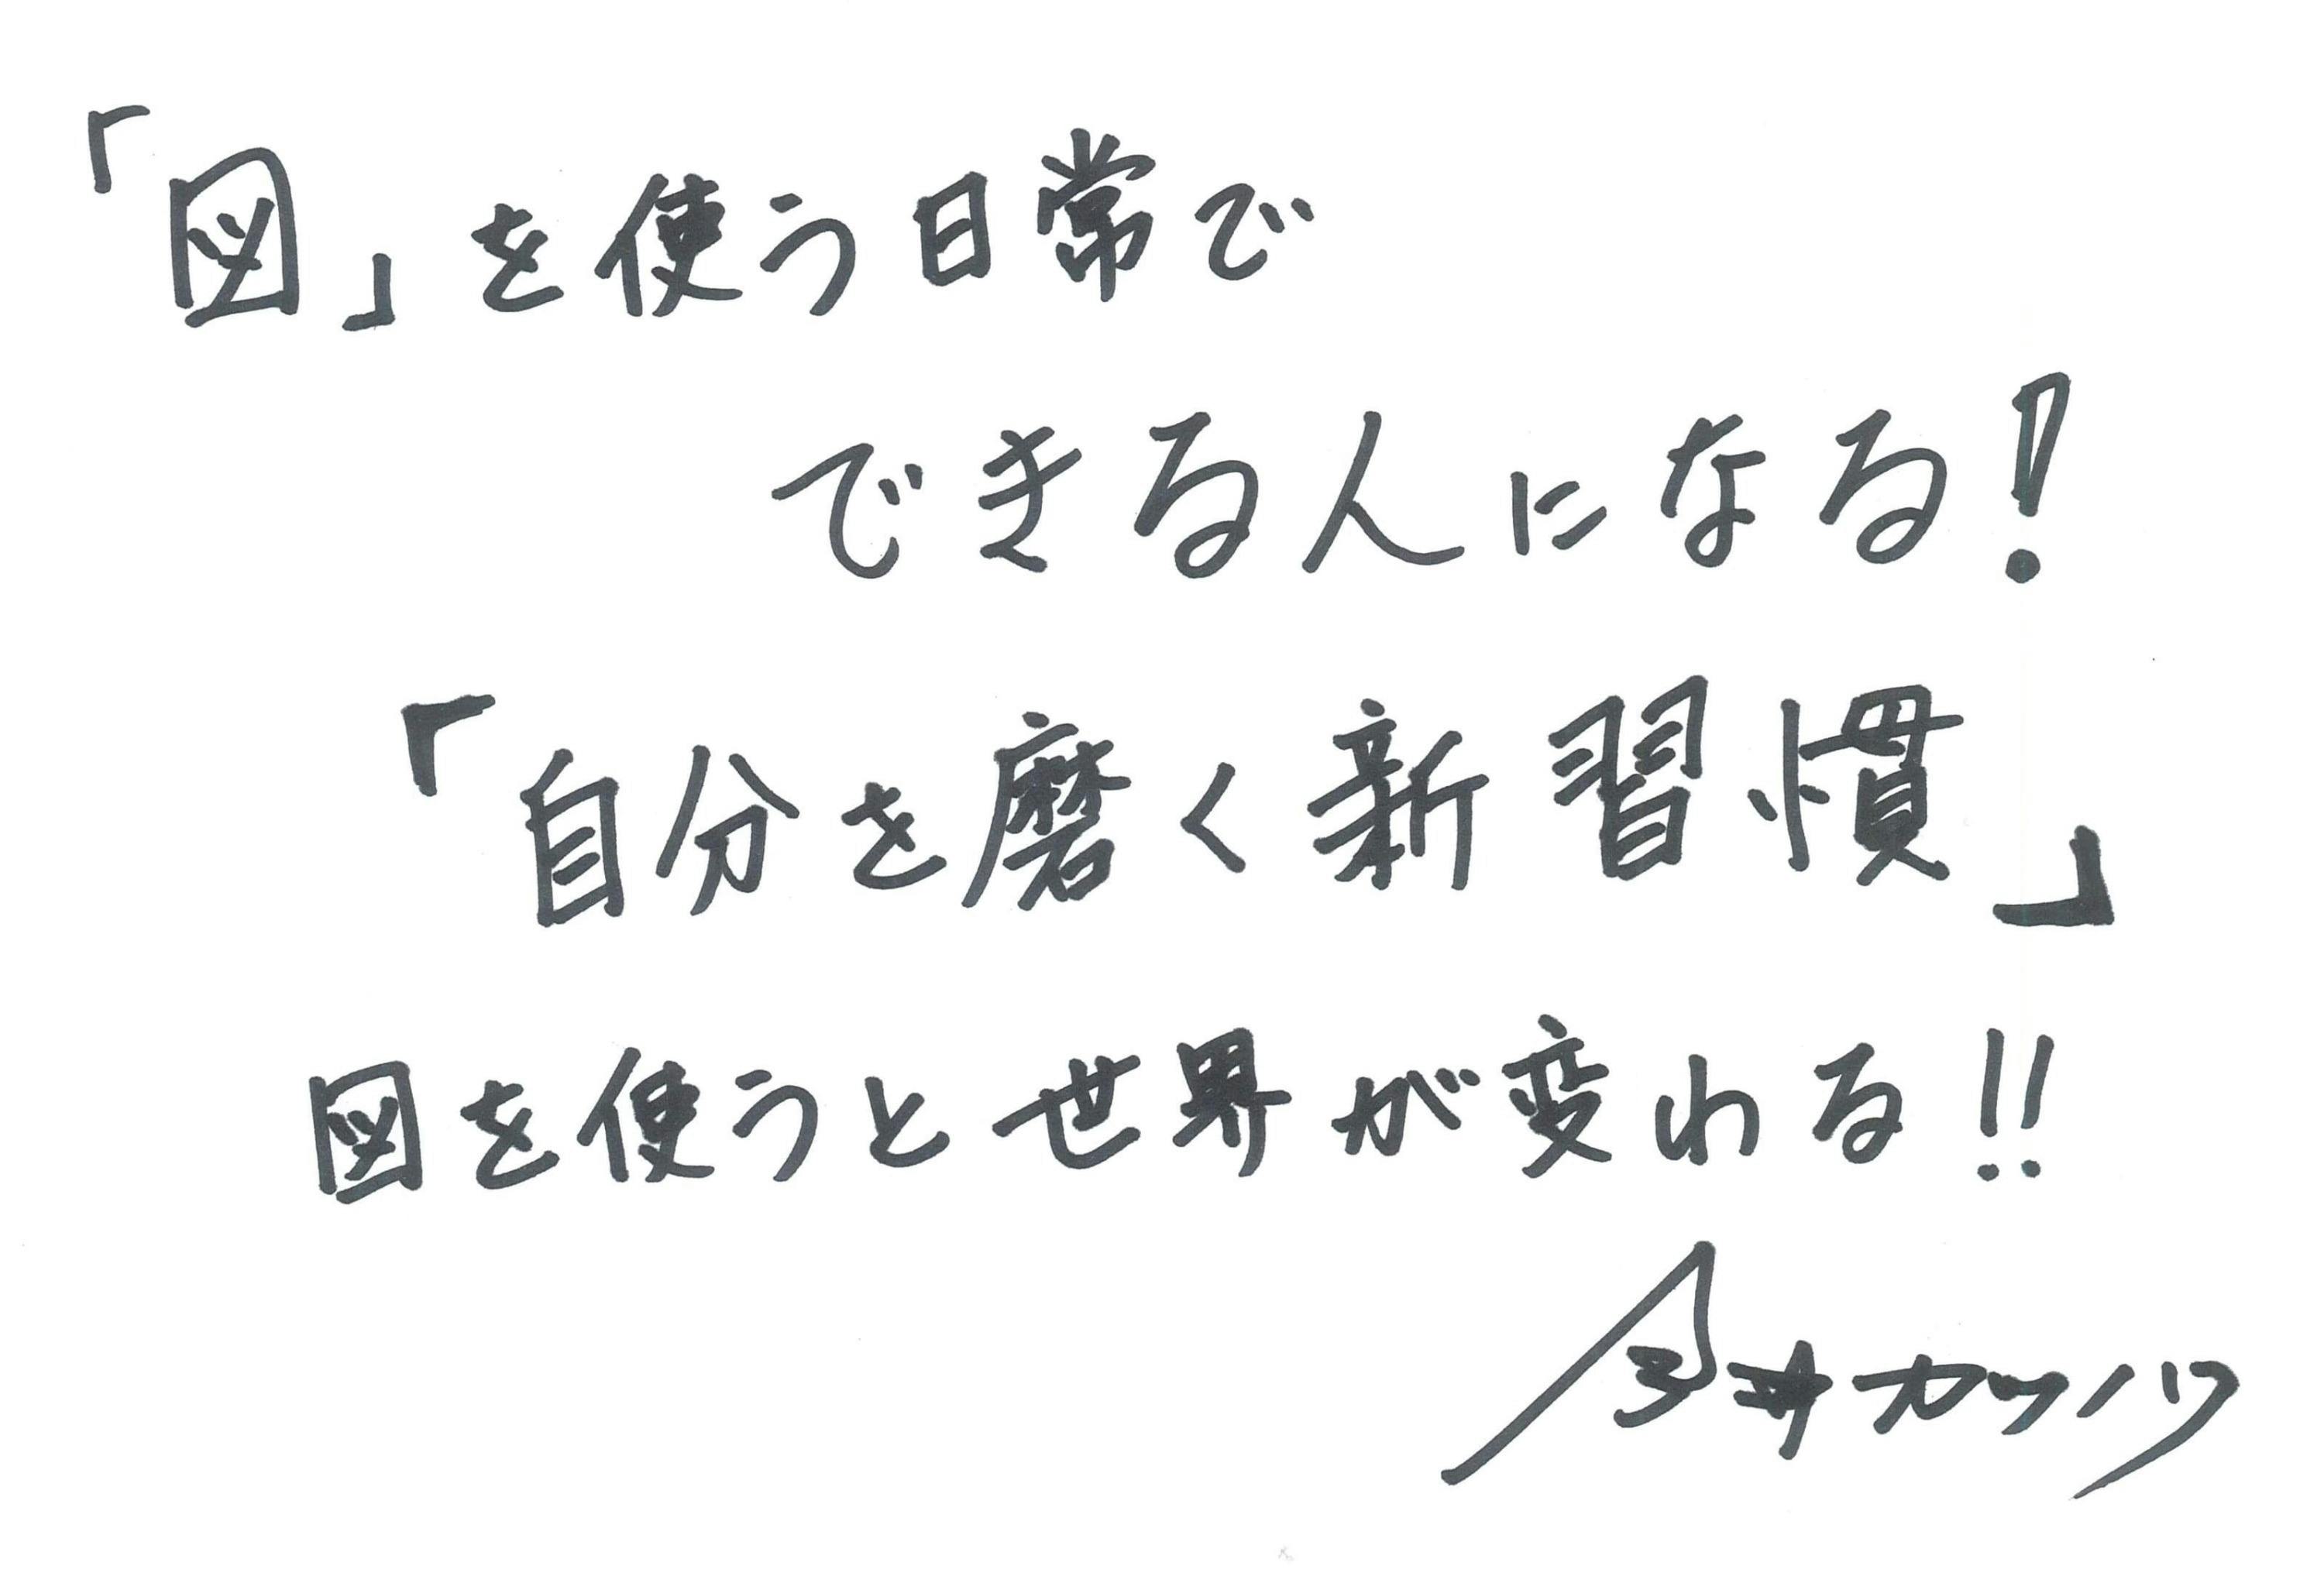 「図」を使う日常で
できる人になる!
「自分を磨く新習慣」
図を使うと世界が変わる!!